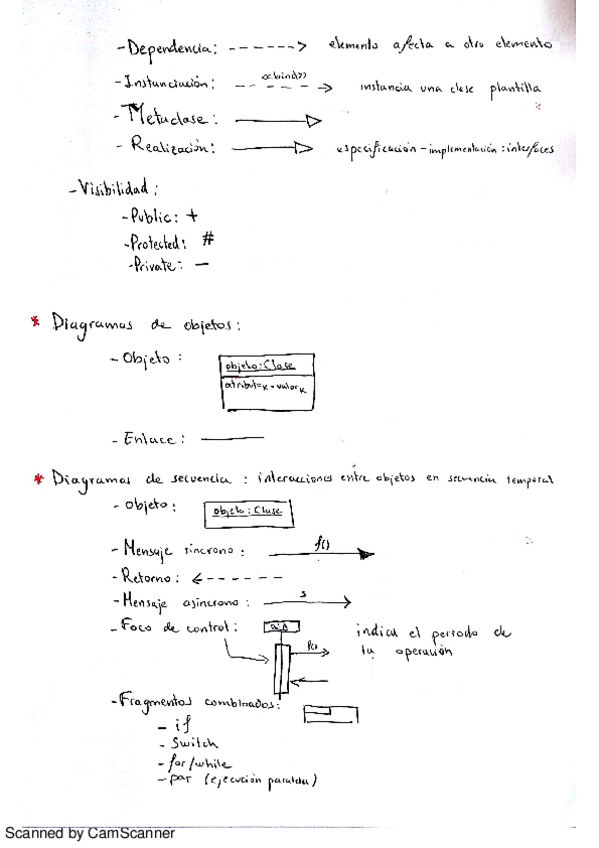 - Dependencia: elemento afecta a otro elemento
- Instanciación: <<bind>> instancia una clase plantilla
- Metaclase:
- Realización: especificación - implementación : interfaces
- Visibilidad:
- Public: +
- Protected: #
- Private: -
* Diagramas de objetos:
- Objeto:
objeto:Clase
atributo_k = valor_k
- Enlace:
* Diagramas de secuencia : interacciones entre objetos en secuencia temporal
- Objeto:
objeto:Clase
- Mensaje síncrono: f()
- Retorno:
- Mensaje asíncrono: s
- Foco de control: indica el periodo de
la operación
f()
- Fragmentos combinados:
- if
- Switch
- for/while
- par (ejecución paralela)
Scanned by CamScanner